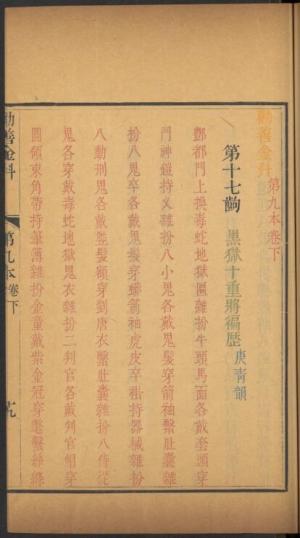 勸善金科
第九本卷下
第十七齣 黑獄十重將徧歷 庚青韻
酆都門上換毒蛇地獄匾雜扮牛頭馬面各戴套頭穿
門神鎧持叉雜扮八小鬼各戴鬼髮穿箭袖繫肚囊雜
扮八鬼卒各戴鬼髮穿蟒箭袖虎皮卒褂持器械雜扮
八動刑鬼各戴竪髮額穿劊唐衣繫肚囊雜扮八侍從
鬼各穿戴毒蛇地獄鬼衣雜扮二判官各戴判官帽穿
圓領束角帶持筆簿雜扮金童戴紫金冠穿氅繫絲縧
勸善金科
第九本卷下
九